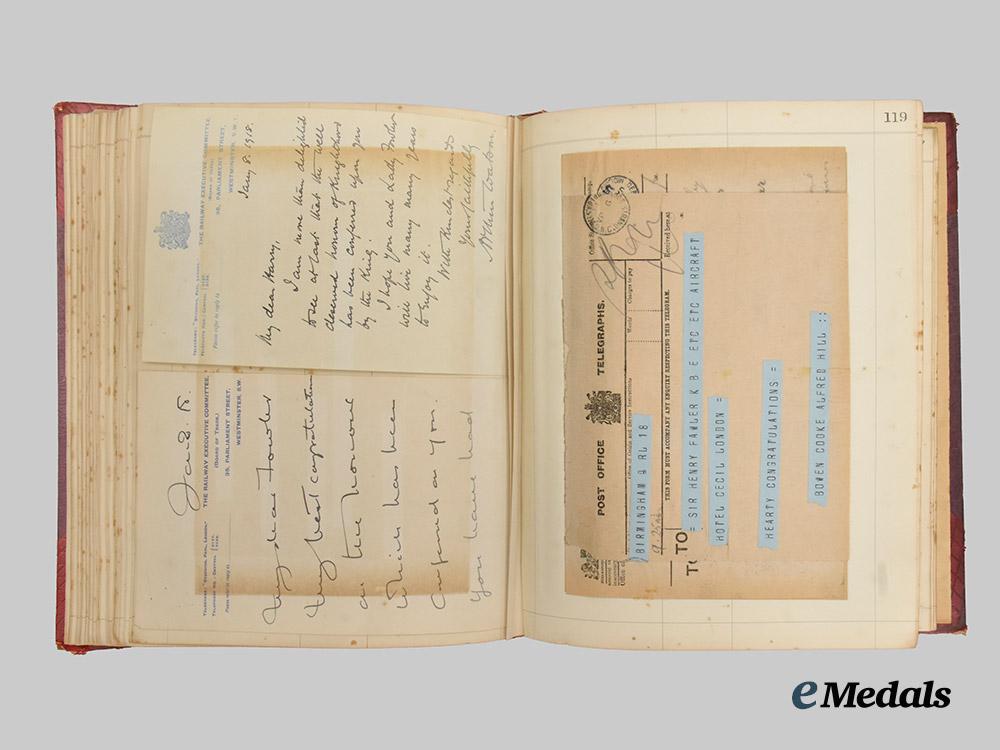 THE RAILWAY EXECUTIVE COMMITTEE,
35, PARLIAMENT STREET,
WESTMINSTER, S.W.1.
Please refer reply to
Jany 8. 1918.
My dear Harry,
I am more than delighted
to see at last that the well
deserved honour of Knighthood
has been conferred upon you
by the King.
I hope you and Lady Fowler
will live many many years
to enjoy it.
With Kindest regards
Yours faithfully
THE RAILWAY EXECUTIVE COMMITTEE,
(BOARD OF TRADE,)
35, PARLIAMENT STREET,
WESTMINSTER, S.W.
Jan. 8.
My dear Fowler
My best congratulations
on the honour
which has been
conferred on you.
You have had
119
POST OFFICE TELEGRAPHS.
THIS FORM MUST ACCOMPANY ANY ENQUIRY RESPECTING THIS TELEGRAM.
BIRMINGHAM Q RL 18
TO
= SIR HENRY FAWLER K B E ETC ETC AIRCRAFT
HOTEL CECIL LONDON =
HEARTY CONGRATULATIONS =
BOWEN COOKE ALFRED HILL ::
eMedals